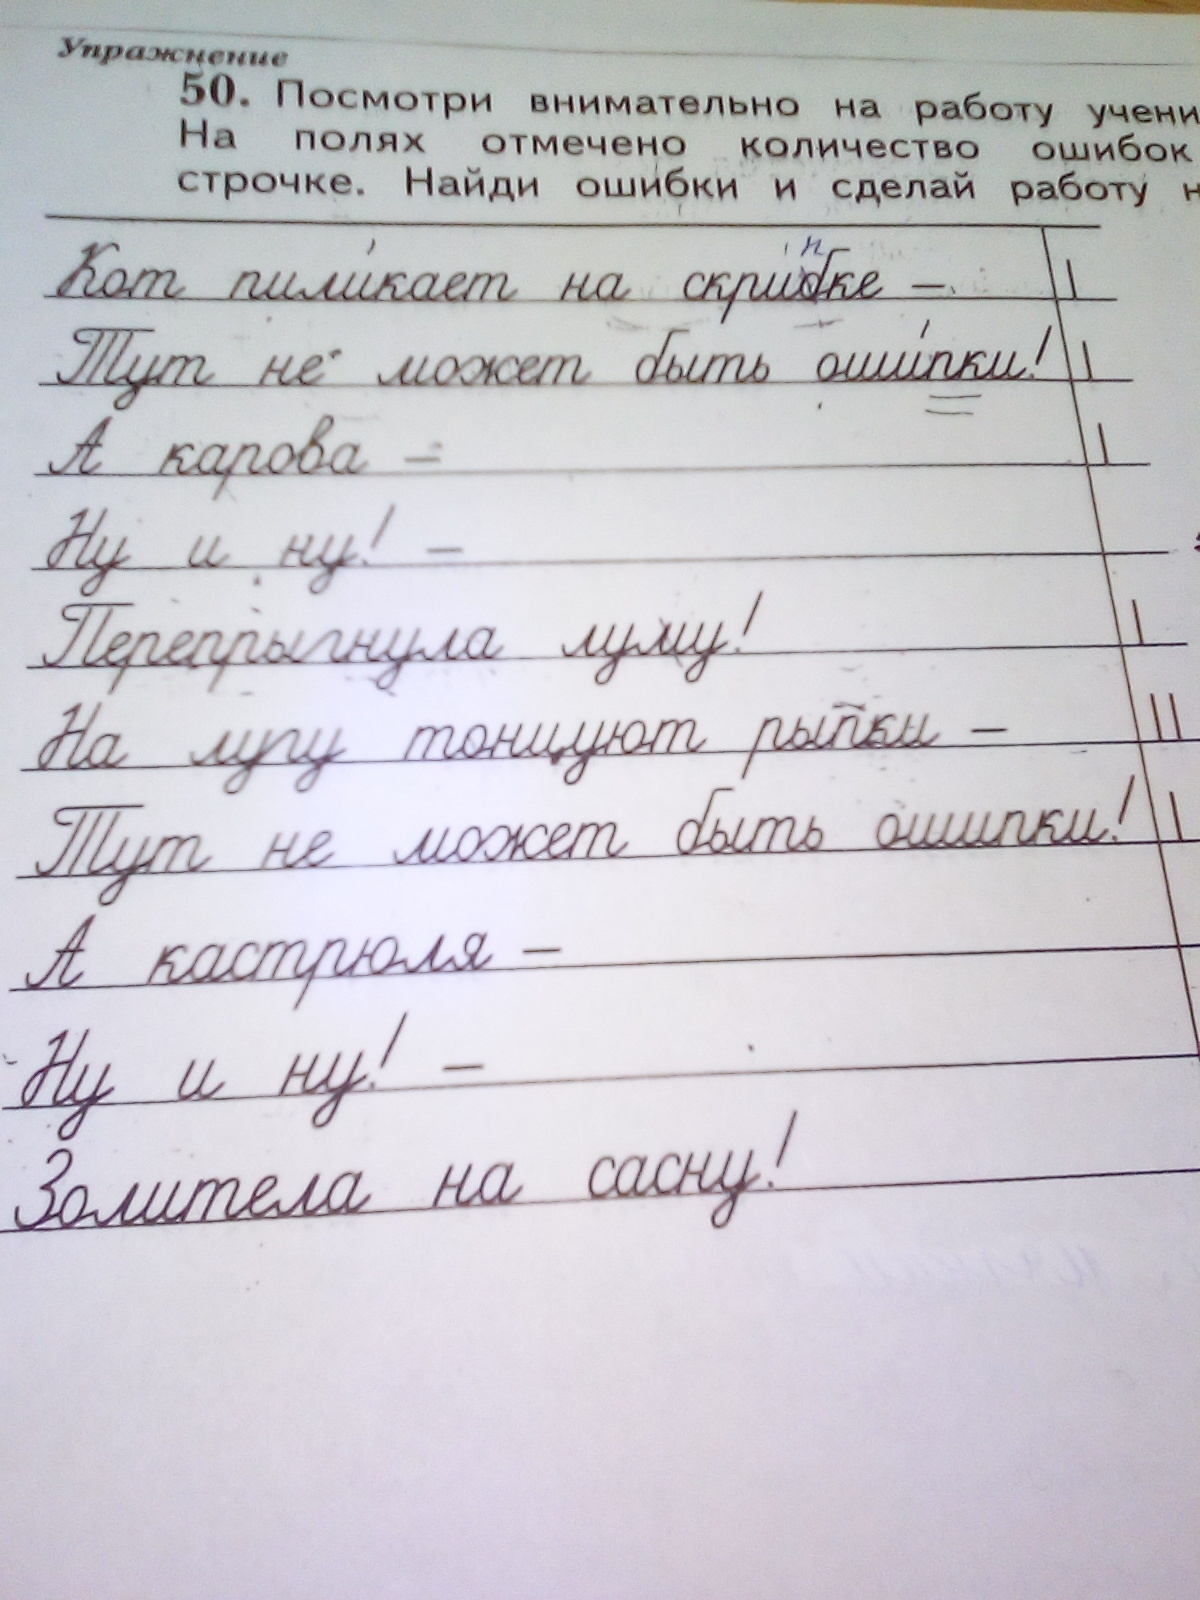 Упражнение
50. Посмотри внимательно на работу учени
На полях отмечено количество ошибок
строчке. Найди ошибки и сделай работу н
п
Кот пиликает на скрибке –
Тут не может быть ошипки!
А карова –
Ну и ну! –
Перепрыгнула луму!
На лугу тонцуют рыпки –
Тут не может быть ошипки!
А кастрюля –
Ну и ну! –
Золитела на сасну!